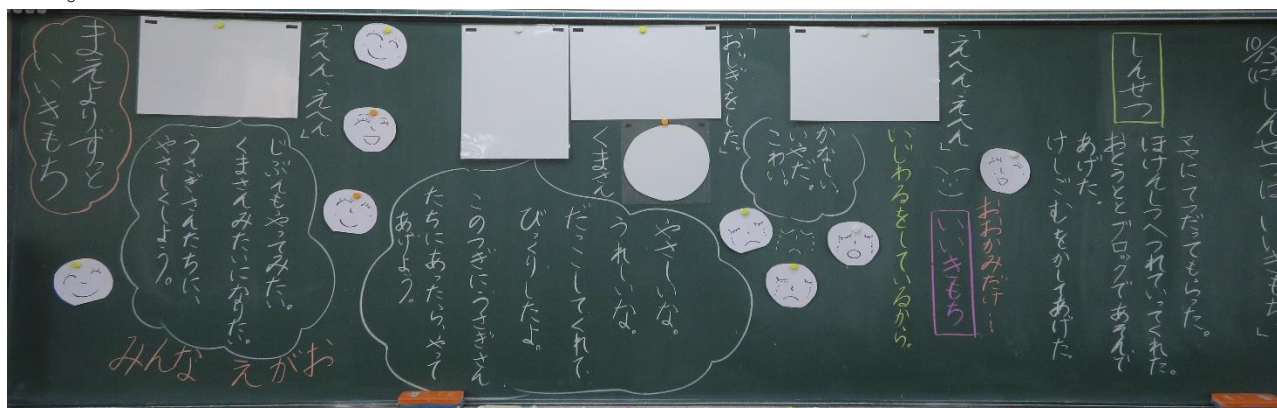 10/13(に)しんせつは いいきもち」
しんせつ
ママにてつだってもらった。
ほけんしつへつれていってくれた。
おとうととブロックであそんで
あげた。
けしごむをかしてあげた。
「えへん、えへん」
おおかみだけ…
いいきもち
いじわるをしているから。
かなしい。
いやだ。
こわい。
「おじぎをした。」
くまさん
やさしいな。
うれしいな。
だっこしてくれて、
びっくりしたよ。
このつぎにうさぎさん
たちにあったら、やって
あげよう。
「えへん、えへん」
じぶんもやってみたい。
くまさんみたいになりたい。
うさぎさんたちに、
やさしくしよう。
みんな えがお
まえよりずっと
いいきもち